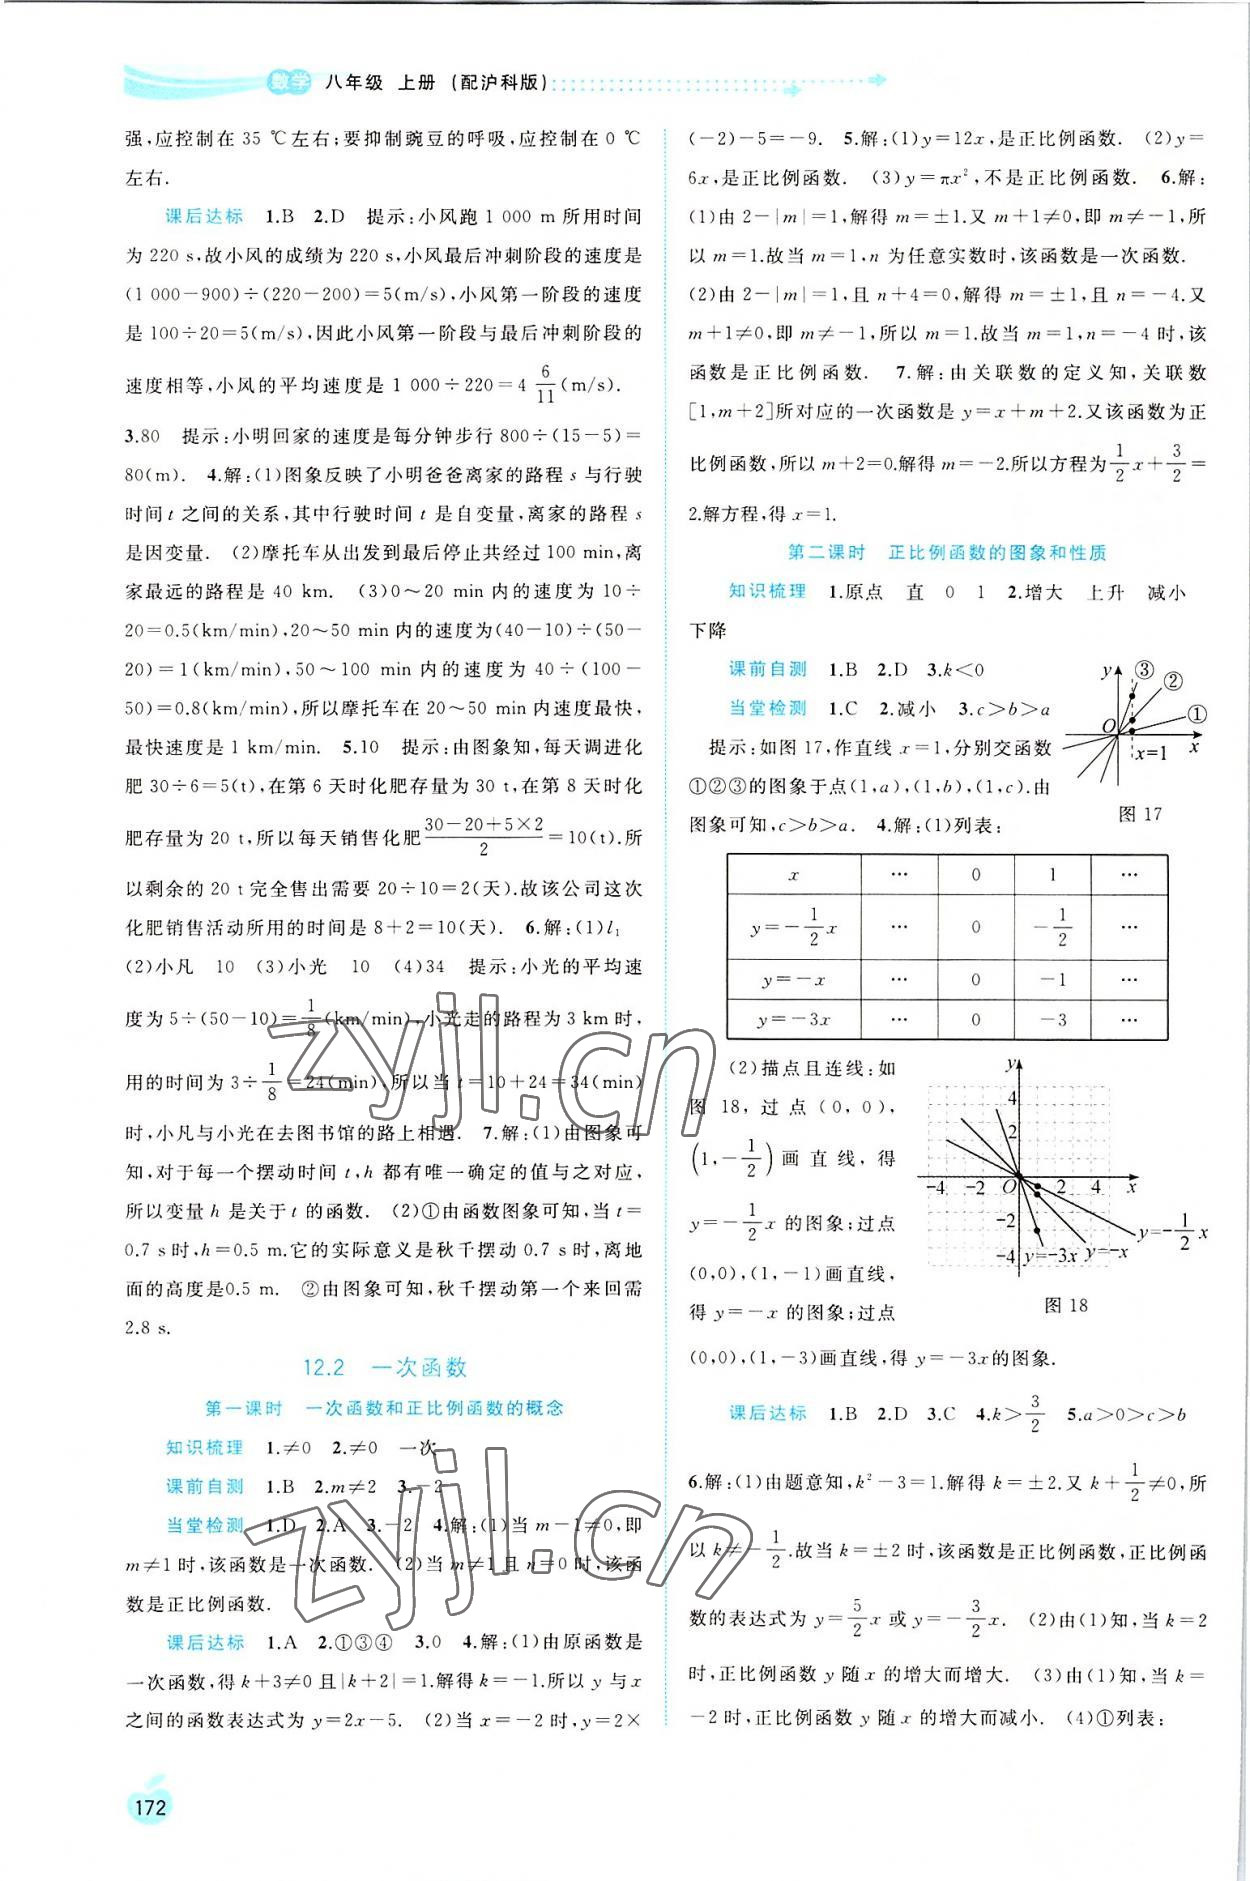 数学 八年级 上册 (配沪科版)
强,应控制在 35 ℃左右;要抑制豌豆的呼吸,应控制在 0 ℃
左右.
课后达标 1.B 2.D 提示:小风跑 1 000 m 所用时间
为 220 s,故小风的成绩为 220 s,小风最后冲刺阶段的速度是
(1 000-900)÷(220-200)=5(m/s),小风第一阶段的速度
是 100÷20=5(m/s),因此小风第一阶段与最后冲刺阶段的
速度相等,小风的平均速度是 1 000÷220=4 6/11(m/s).
3.80 提示:小明回家的速度是每分钟步行 800÷(15-5)=
80(m). 4.解:(1)图象反映了小明爸爸离家的路程 s 与行驶
时间 t 之间的关系,其中行驶时间 t 是自变量,离家的路程 s
是因变量. (2)摩托车从出发到最后停止共经过 100 min,离
家最远的路程是 40 km. (3)0～20 min 内的速度为 10÷
20=0.5(km/min),20～50 min 内的速度为(40-10)÷(50-
20)=1(km/min),50～100 min 内的速度为 40÷(100-
50)=0.8(km/min),所以摩托车在 20～50 min 内速度最快,
最快速度是 1 km/min. 5.10 提示:由图象知,每天调进化
肥 30÷6=5(t),在第 6 天时化肥存量为 30 t,在第 8 天时化
肥存量为 20 t,所以每天销售化肥(30-20+5×2)/2=10(t).所
以剩余的 20 t 完全售出需要 20÷10=2(天).故该公司这次
化肥销售活动所用的时间是 8+2=10(天). 6.解:(1)l₁
(2)小凡 10 (3)小光 10 (4)34 提示:小光的平均速
度为 5÷(50-10)=1/8(km/min),小光走的路程为 3 km时,
用的时间为 3÷1/8=24(min),所以当 t=10+24=34(min)
时,小凡与小光在去图书馆的路上相遇. 7.解:(1)由图象可
知,对于每一个摆动时间 t,h 都有唯一确定的值与之对应,
所以变量 h 是关于 t 的函数. (2)①由函数图象可知,当 t=
0.7 s时,h=0.5 m.它的实际意义是秋千摆动 0.7 s时,离地
面的高度是0.5 m. ②由图象可知,秋千摆动第一个来回需
2.8 s.
12.2 一次函数
第一课时 一次函数和正比例函数的概念
知识梳理 1.≠0 2.≠0 一次
课前自测 1.B 2.m≠2 3.-2
当堂检测 1.D 2.A 3.-2 4.解:(1)当 m-1≠0,即
m≠1时,该函数是一次函数. (2)当 m≠1且 n=0时,该函
数是正比例函数.
课后达标 1.A 2.①③④ 3.0 4.解:(1)由原函数是
一次函数,得 k+3≠0 且|k+2|=1,解得 k=-1.所以 y 与x
之间的函数表达式为 y=2x-5. (2)当 x=-2时,y=2×
172
(-2)-5=-9. 5.解:(1)y=12x,是正比例函数. (2)y=
6x,是正比例函数. (3)y=πx²,不是正比例函数. 6.解:
(1)由 2-|m|=1,解得 m=±1.又 m+1≠0,即 m≠-1,所
以 m=1.故当 m=1,n 为任意实数时,该函数是一次函数.
(2)由 2-|m|=1,且 n+4=0,解得 m=±1,且 n=-4.又
m+1≠0,即 m≠-1,所以 m=1.故当 m=1,n=-4 时,该
函数是正比例函数. 7.解:由关联数的定义知,关联数
[1,m+2]所对应的一次函数是 y=x+m+2.又该函数为正
比例函数,所以 m+2=0.解得 m=-2.所以方程为1/2x+3/2=
2.解方程,得 x=1.
第二课时 正比例函数的图象和性质
知识梳理 1.原点 直 0 1 2.增大 上升 减小
下降
课前自测 1.B 2.D 3.k<0
当堂检测 1.C 2.减小 3.c>b>a
提示:如图 17,作直线 x=1,分别交函数
①②③的图象于点(1,a),(1,b),(1,c).由
图象可知,c>b>a. 4.解:(1)列表:
y ③ ② ① O x x=1
图 17
x … 0 1 …
y=-1/2x … 0 -1/2 …
y=-x … 0 -1 …
y=-3x … 0 -3 …
(2)描点且连线:如
图 18,过点(0,0),
(1,-1/2)画直线,得
y=-1/2x 的图象;过点
(0,0),(1,-1)画直线,
得 y=-x 的图象;过点
(0,0),(1,-3)画直线,得 y=-3x的图象.
y 4 2
-4 -2 O 2 4 x
-2
-4 y=-3x y=-x y=-1/2x
图 18
课后达标 1.B 2.D 3.C 4.k>3/2 5.a>0>c>b
6.解:(1)由题意知,k²-3=1.解得 k=±2.又 k+1/2≠0,所
以 k≠-1/2.故当 k=±2时,该函数是正比例函数,正比例函
数的表达式为 y=5/2x 或 y=-3/2x. (2)由(1)知,当 k=2
时,正比例函数 y 随 x 的增大而增大. (3)由(1)知,当 k=
-2时,正比例函数 y 随 x 的增大而减小. (4)①列表:
zyjl.cn
zyjl.cn